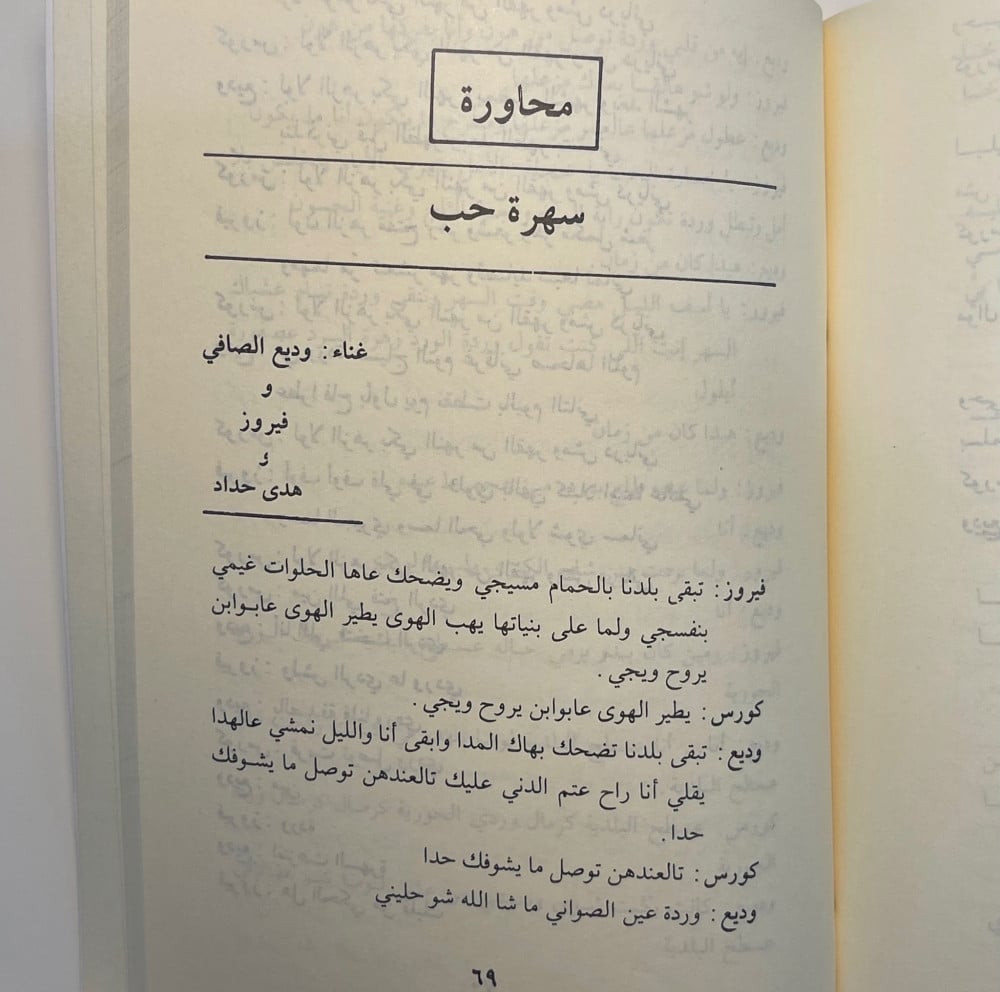 محاورة
سهرة حب
غناء: وديع الصافي
و
فيروز
و
هدى حداد
فيروز: تبقى بلدنا بالحمام مسيجي ويضحك عاها الحلوات غيمي
بنفسجي ولما على بنياتها يهب الهوى يطير الهوى عابوابن
يروح ويجي.
كورس: يطير الهوى عابوابن يروح ويجي.
وديع: تبقى بلدنا تضحك بهاك المدا وابقى أنا والليل نمشي عالهدا
يقلي أنا راح عتم الدني عليك تالعندهن توصل ما يشوفك
حدا.
كورس: تالعندهن توصل ما يشوفك حدا
وديع: وردة عين الصواني ما شا الله شو حليني
٦٩